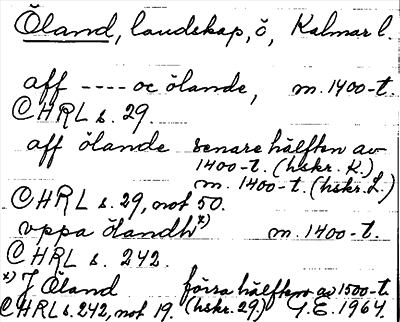 Öland, landskap, ö, Kalmar l.
aff ---- oc ölande, m. 1400-t.
CHRL s. 29.
aff ölande senare hälften av
1400-t. (hskr. K.)
m. 1400-t. (hskr. L.)
CHRL s. 29, not 50.
vppa ölandhx) m. 1400-t.
CHRL s. 242.
x) J Öland förra hälften av 1500-t.
CHRL s. 242, not 19. (hskr. 29.) G.E. 1964.